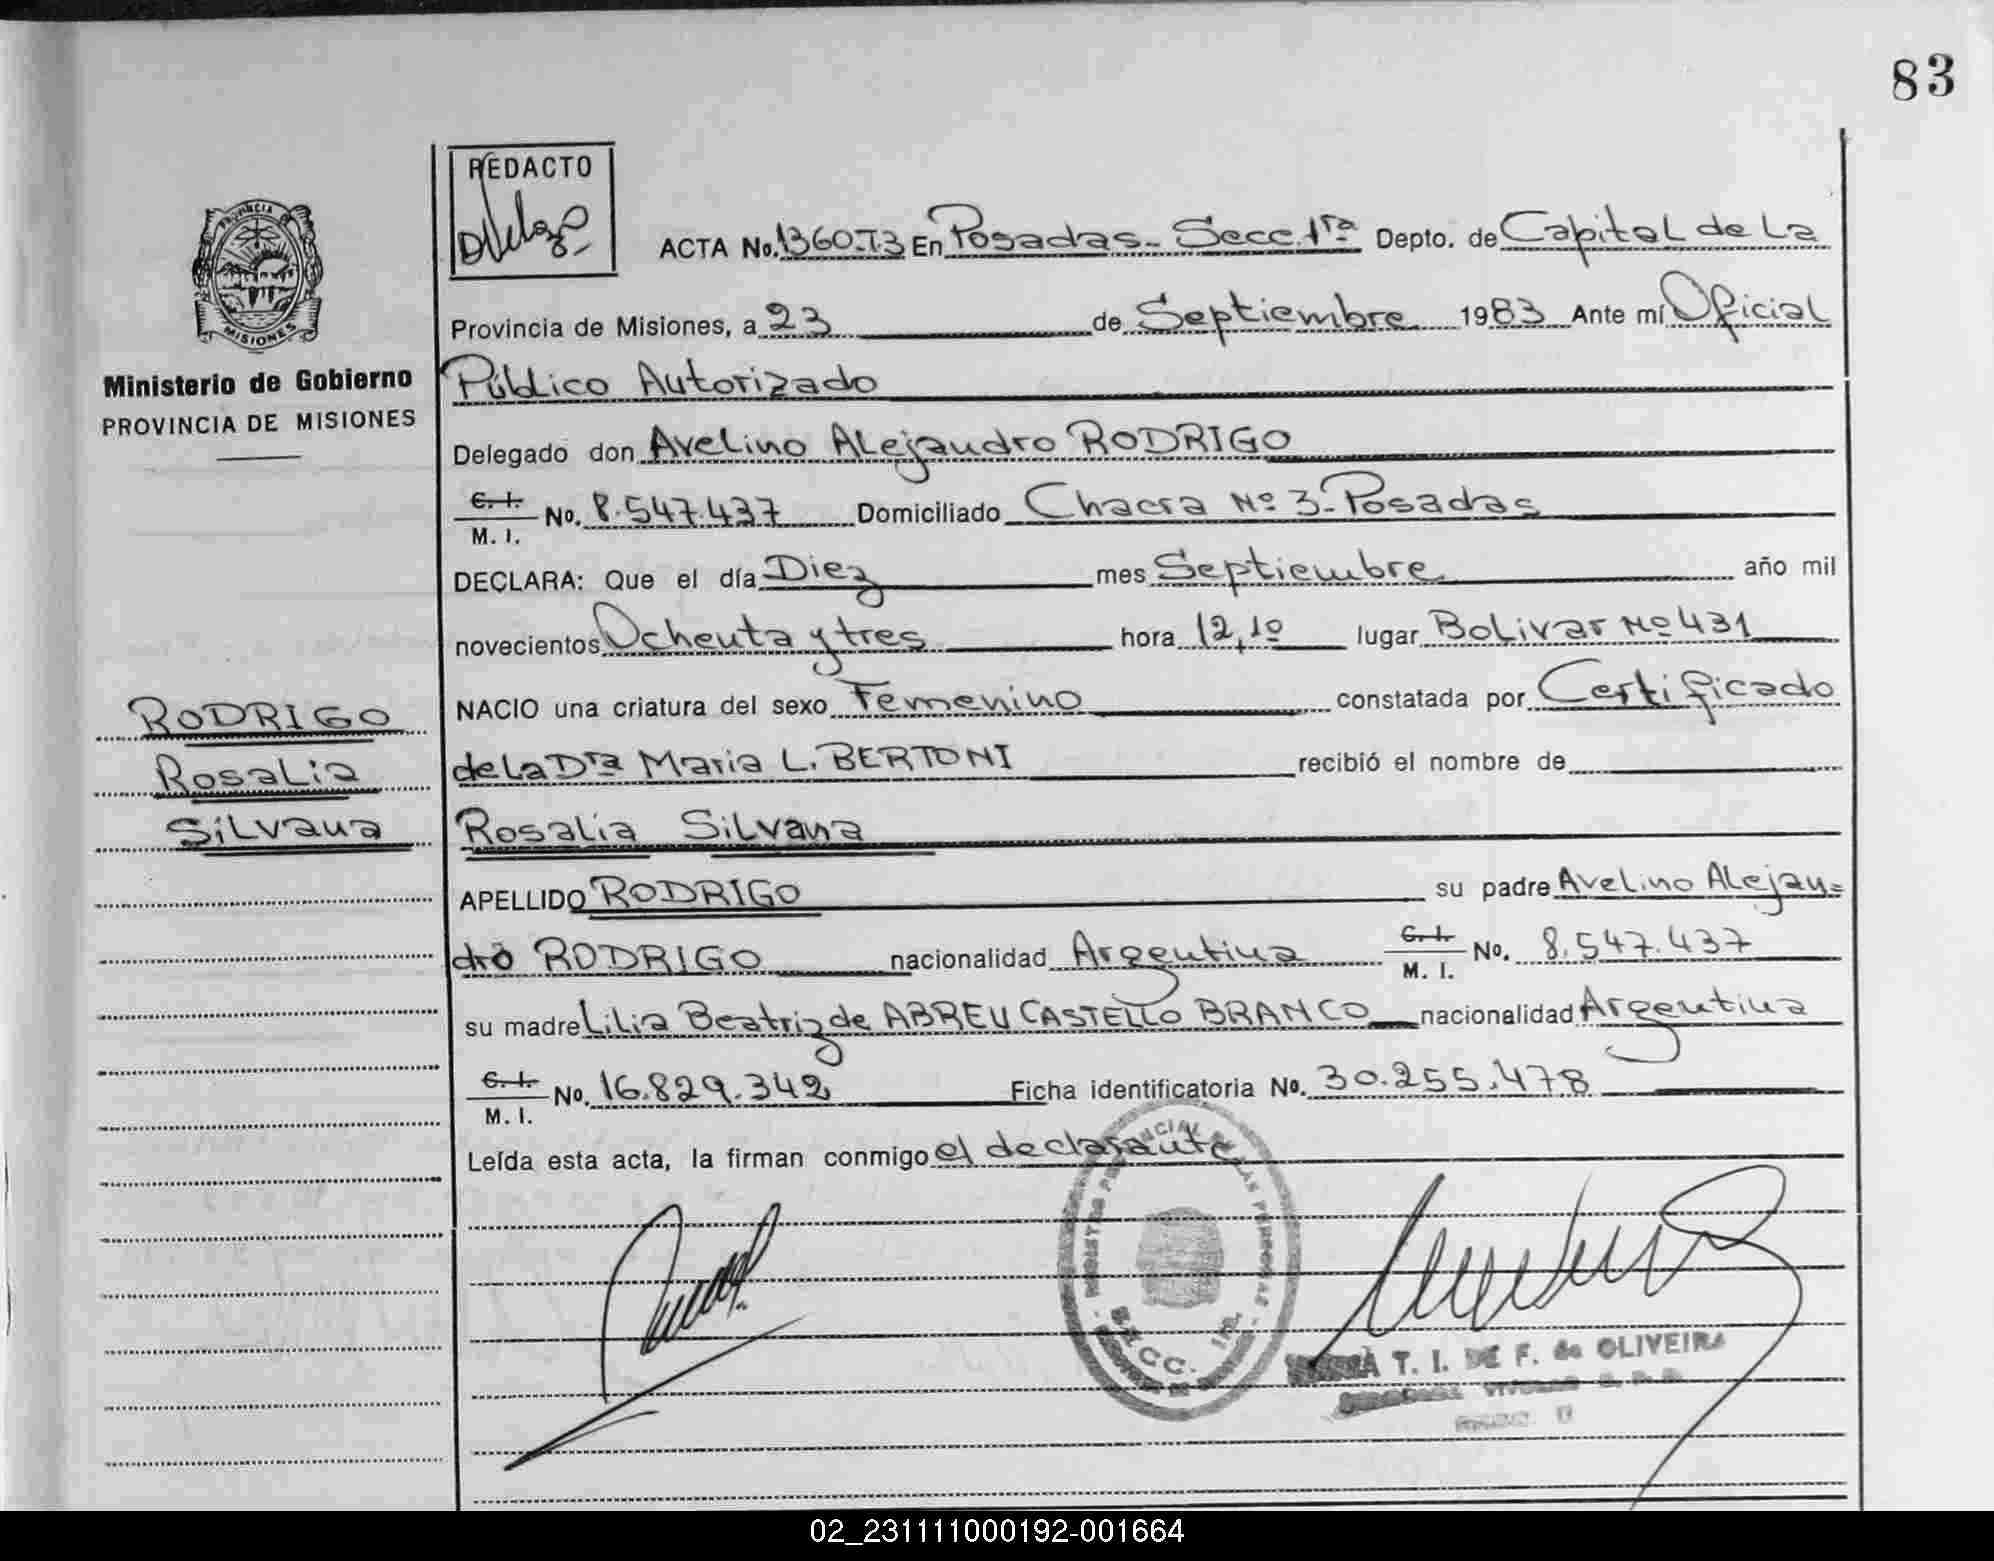 83
REDACTO
ACTA No. 1360-T3 En Posadas - Secc. 1ra Depto. de Capital de La
Provincia de Misiones, a 23 de Septiembre 1983 Ante mí Oficial
Público Autorizado
Delegado don Avelino Alejandro RODRIGO
C. I.
M. I. No. 8.547.437 Domiciliado Chacra Nº 3 - Posadas
DECLARA: Que el día Diez mes Septiembre año mil
novecientos Ochenta y tres hora 12,10 lugar Bolivar Nº 431
NACIO una criatura del sexo Femenino constatada por Certificado
de la Dra Maria L. BERTONI recibió el nombre de
Rosalia Silvana
APELLIDO RODRIGO su padre Avelino Alejan=
dro RODRIGO nacionalidad Argentina C. I.
M. I. No. 8.547.437
su madre Lilia Beatriz de ABREU CASTELLO BRANCO nacionalidad Argentina
C. I.
M. I. No. 16.829.342 Ficha identificatoria No. 30.255.478
Leída esta acta, la firman conmigo el declarante
PROVINCIA DE
MISIONES
Ministerio de Gobierno
PROVINCIA DE MISIONES
RODRIGO
Rosalia
Silvana
REGISTRO PROVINCIAL DE LAS PERSONAS
SECC. 1ra.
T. I. DE F. de OLIVEIRA
02_231111000192-001664